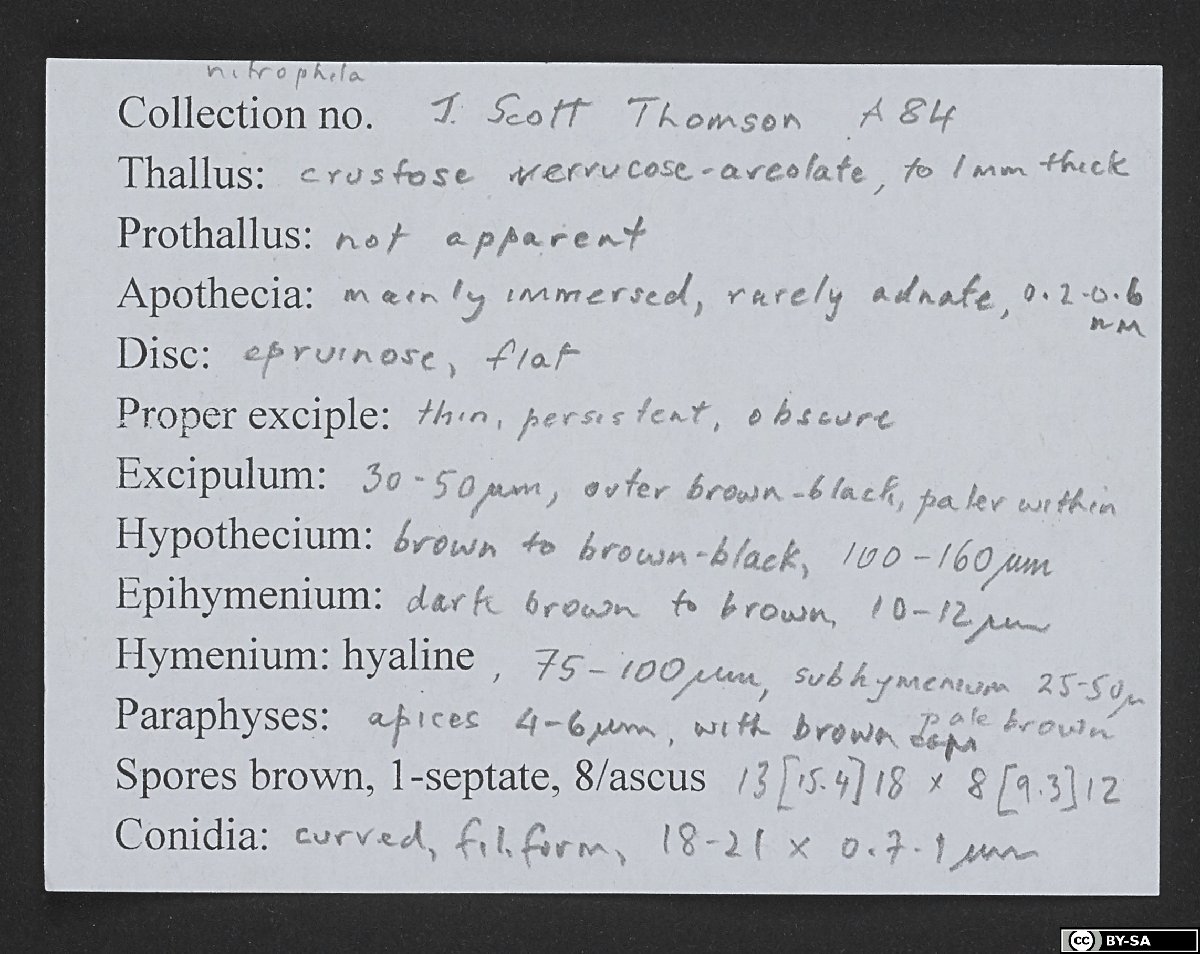 nitrophila
Collection no. J. Scott Thomson A 84
Thallus: crustose verrucose-areolate, to 1 mm thick
Prothallus: not apparent
Apothecia: mainly immersed, rarely adnate, 0.2-0.6
mm
Disc: epruinose, flat
Proper exciple: thin, persistent, obscure
Excipulum: 30-50 µm, outer brown-black, paler within
Hypothecium: brown to brown-black, 100-160 µm
Epihymenium: dark brown to brown, 10-12 µm
Hymenium: hyaline, 75-100 µm, subhymenium 25-50 µ
pale brown
Paraphyses: apices 4-6 µm, with brown caps
Spores brown, 1-septate, 8/ascus 13[15.4]18 x 8[9.3]12
Conidia: curved, filiform, 18-21 x 0.7-1 µm
cc BY-SA